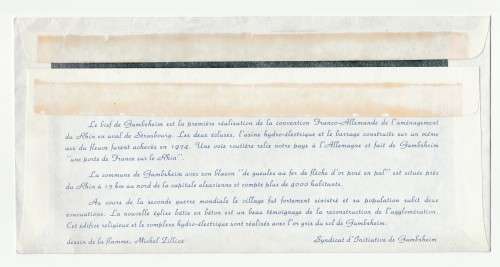 Le bief de Gambsheim est la première réalisation de la convention Franco-Allemande de l'aménagement
du Rhin en aval de Strasbourg. Les deux écluses, l'usine hydro-électrique et le barrage construits sur un même
axe du fleuve furent achevés en 1974. Une voie routière relie notre pays à l'Allemagne et fait de Gambsheim
"une porte de France sur le Rhin".
La commune de Gambsheim avec son blason "de gueules au fer de flèche d'or posé en pal" est située près
du Rhin à 17 km au nord de la capitale alsacienne et compte plus de 4000 habitants.
Au cours de la seconde guerre mondiale le village fut fortement sinistré et sa population subit deux
évacuations. La nouvelle église bâtie en béton est un beau témoignage de la reconstruction de l'agglomération.
Cet édifice religieux et le complexe hydro-électrique sont réalisés avec l'or gris du sol de Gambsheim.
dessin de la flamme, Michel
Syndicat d'Initiative de Gambsheim